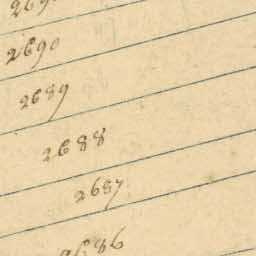 2690
2689
2688
2687
2686